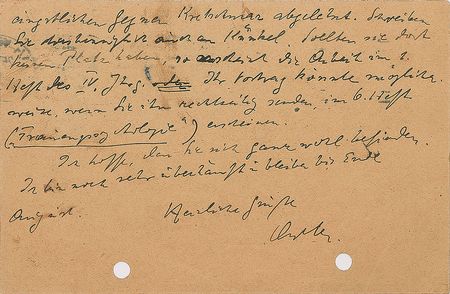 ängstlichen Gegner Kretschmar abgelehnt. Schreiben
Sie diesbezüglich auch an Künkel. Sollten Sie dort
keinen Platz haben, so erscheint die Arbeit im 2.
Heft des IV. Jhg. oder Ihr Vortrag könnte möglicher
weise, wenn Sie ihn rechtzeitig senden, im 6. Heft
("Frauenpsychologie") erscheinen.
Ich hoffe, dass Sie sich ganz wohl befinden.
Ich bin noch sehr überlauft u bleibe bis Ende
August. Herzliche Grüße
Adler.